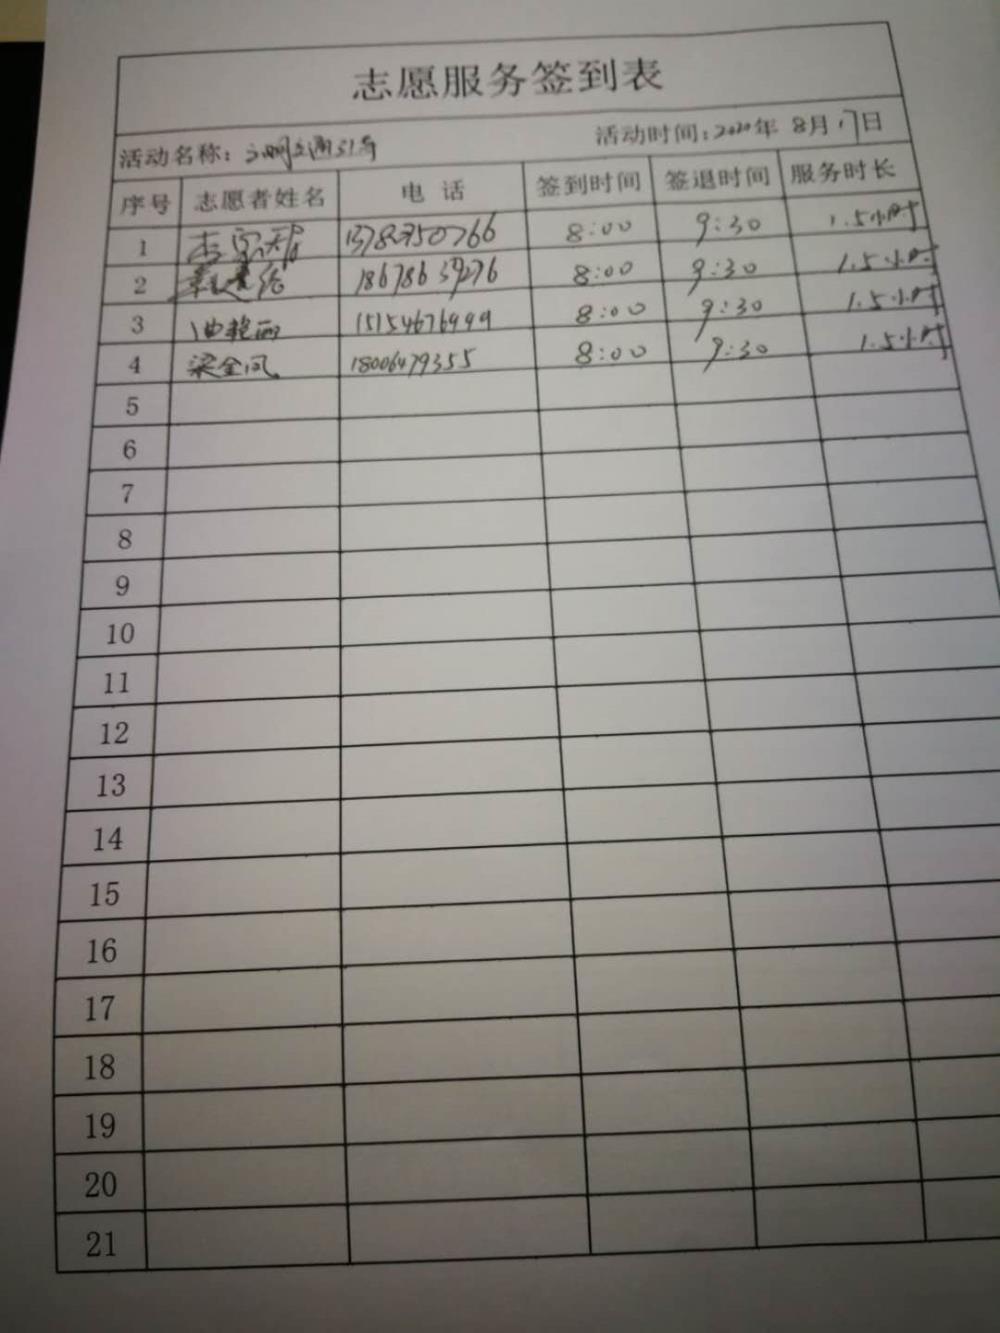 志愿服务签到表
活动名称：文明交通引导 活动时间：2020年 8月17日
序号 志愿者姓名 电 话 签到时间 签退时间 服务时长
1 8:00 9:30 1.5小时
2 18678639276 8:00 9:30 1.5小时
3 曲艳丽 15154676999 8:00 9:30 1.5小时
4 梁金凤 18006479355 8:00 9:30 1.5小时
5
6
7
8
9
10
11
12
13
14
15
16
17
18
19
20
21